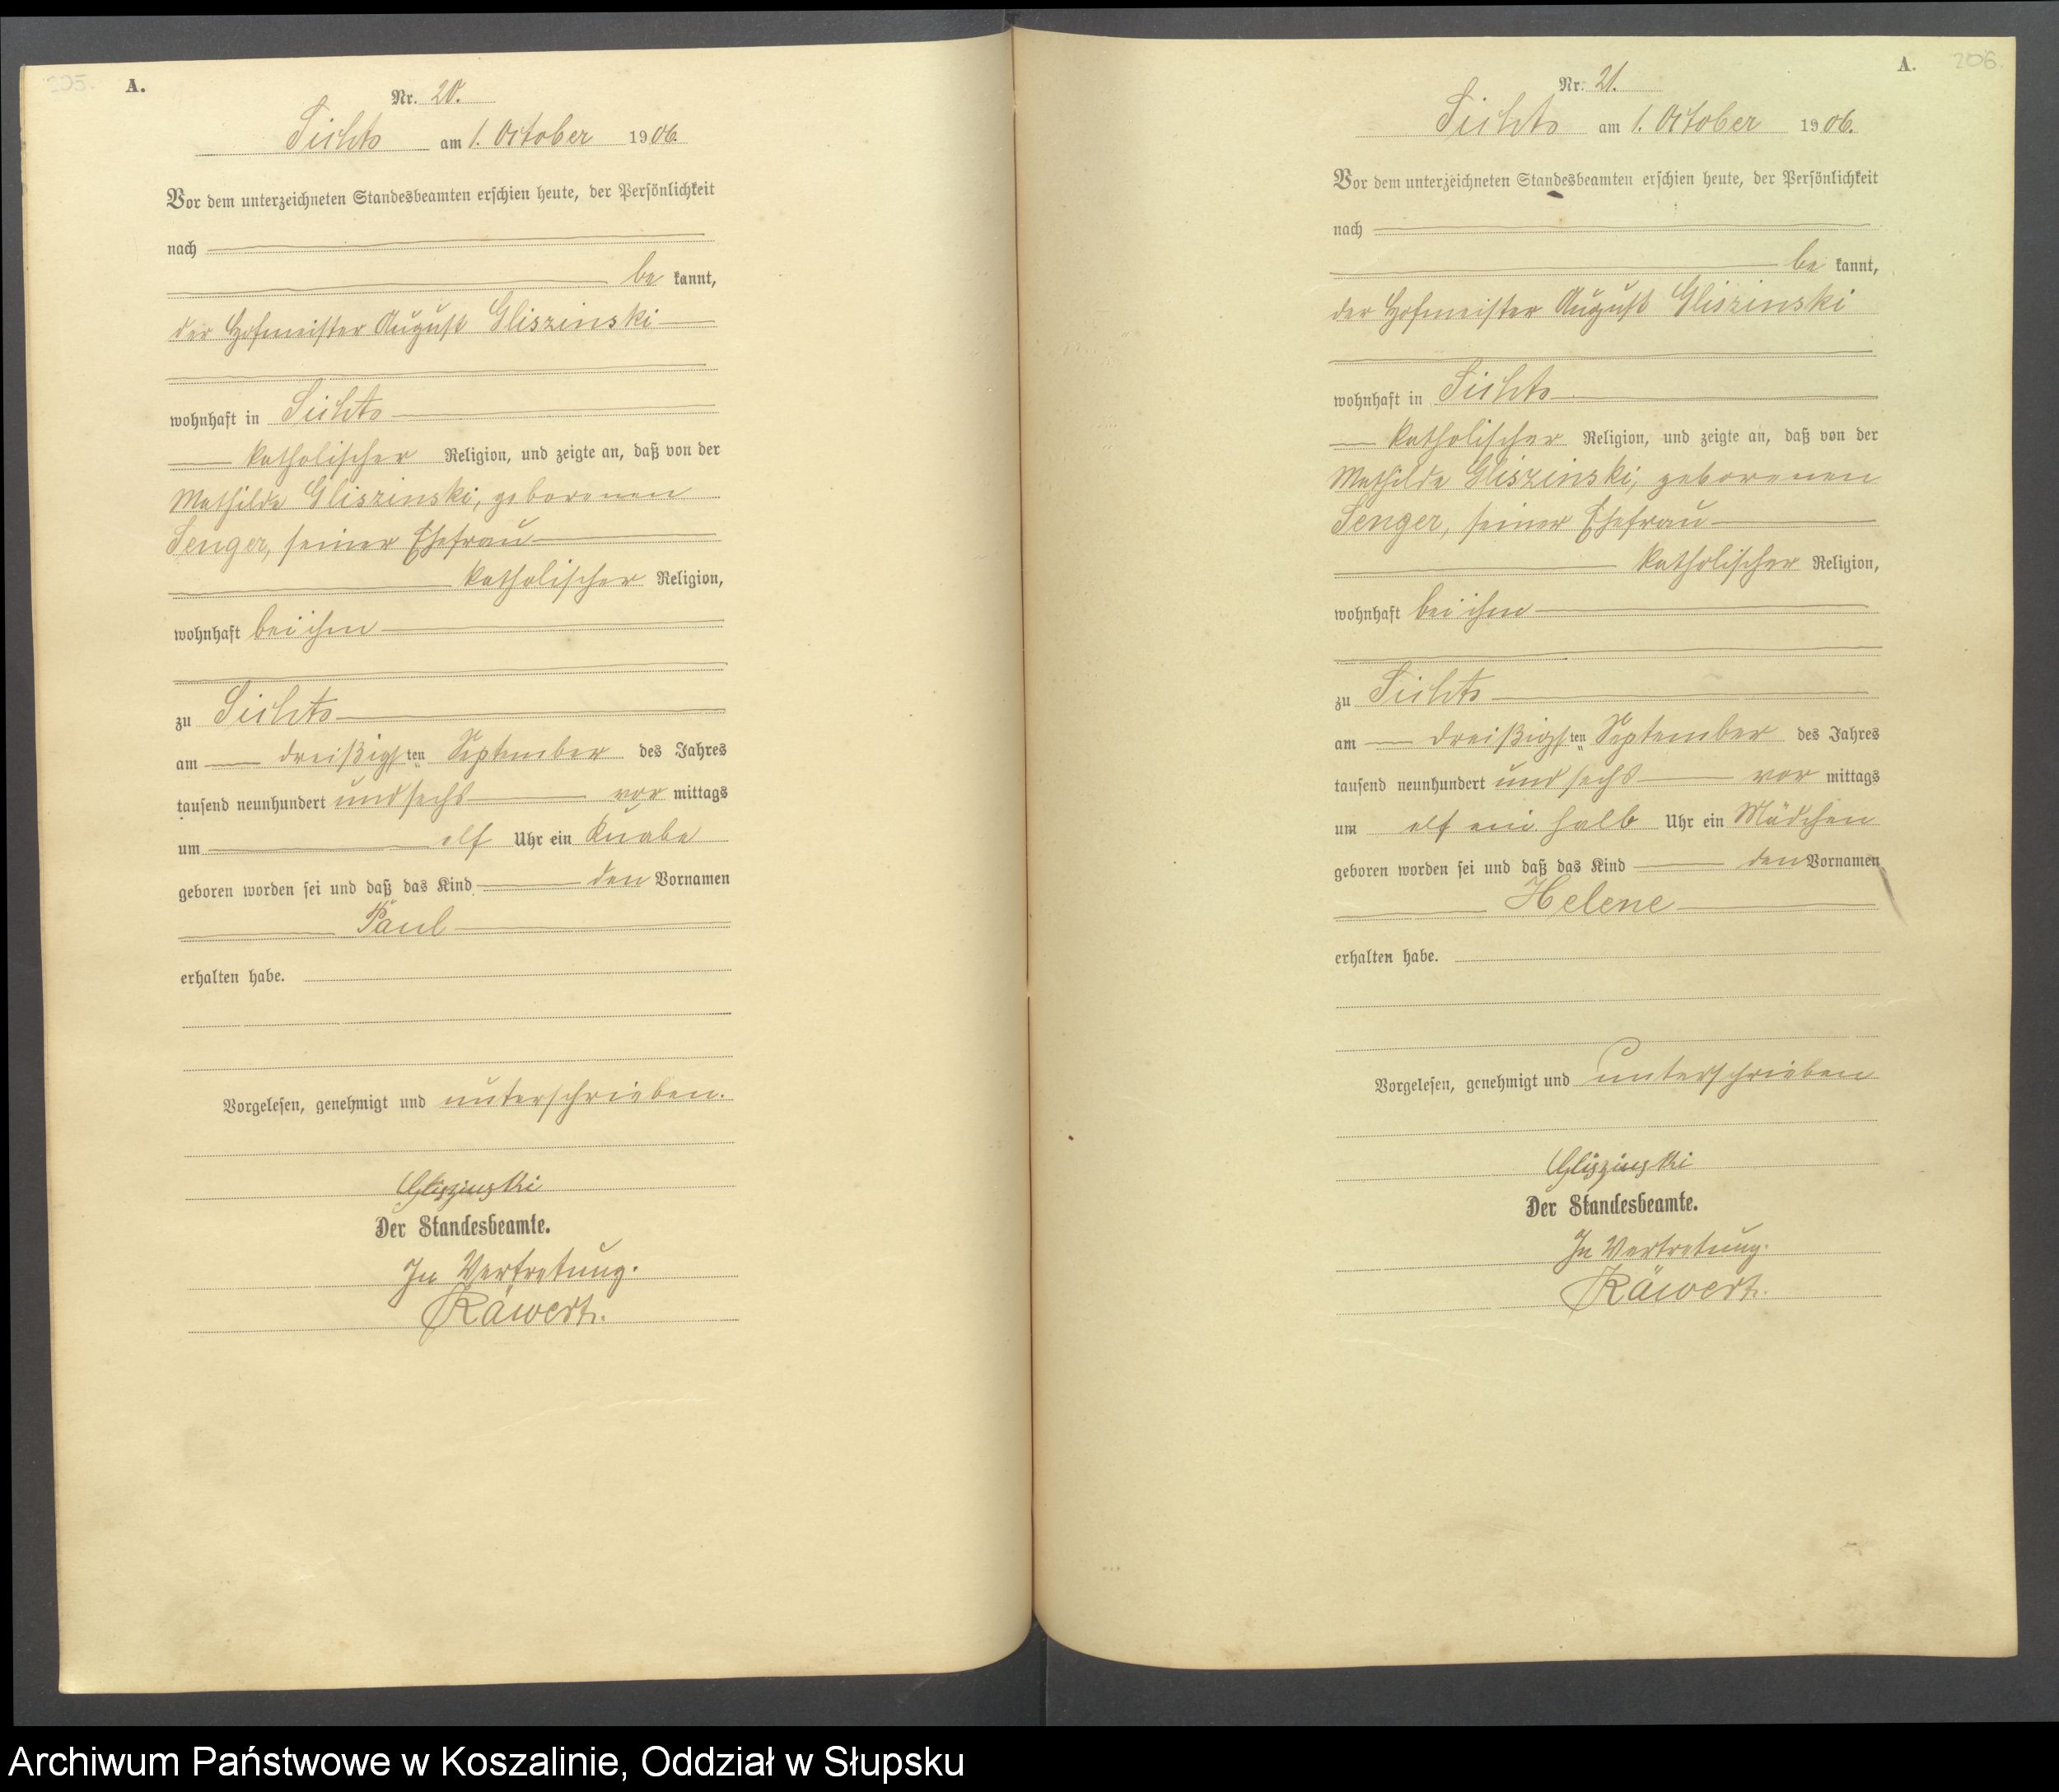 205.
A.
Nr. 20.
Sichts am 1. October 1906.
Vor dem unterzeichneten Standesbeamten erschien heute, der Persönlichkeit
nach
be kannt,
der Hofmeister August Gliszinski
wohnhaft in Sichts
katholischer Religion, und zeigte an, daß von der
Mathilde Gliszinski, geborenen
Senger, seiner Ehefrau
katholischer Religion,
wohnhaft bei ihm
zu Sichts
am dreißigsten September des Jahres
tausend neunhundert und sechs vor mittags
um elf Uhr ein Knabe
geboren worden sei und daß das Kind den Vornamen
Paul
erhalten habe.
Vorgelesen, genehmigt und unterschrieben.
Gliszinski
Der Standesbeamte.
In Vertretung.
Räwert.
A.
206.
Nr. 21.
Sichts am 1. October 1906.
Vor dem unterzeichneten Standesbeamten erschien heute, der Persönlichkeit
nach
be kannt,
der Hofmeister August Gliszinski
wohnhaft in Sichts
katholischer Religion, und zeigte an, daß von der
Mathilde Gliszinski, geborenen
Senger, seiner Ehefrau
katholischer Religion,
wohnhaft bei ihm
zu Sichts
am dreißigsten September des Jahres
tausend neunhundert und sechs vor mittags
um elf ein halb Uhr ein Mädchen
geboren worden sei und daß das Kind den Vornamen
Helene
erhalten habe.
Vorgelesen, genehmigt und unterschrieben
Gliszinski
Der Standesbeamte.
In Vertretung.
Räwert.
Archiwum Państwowe w Koszalinie, Oddział w Słupsku